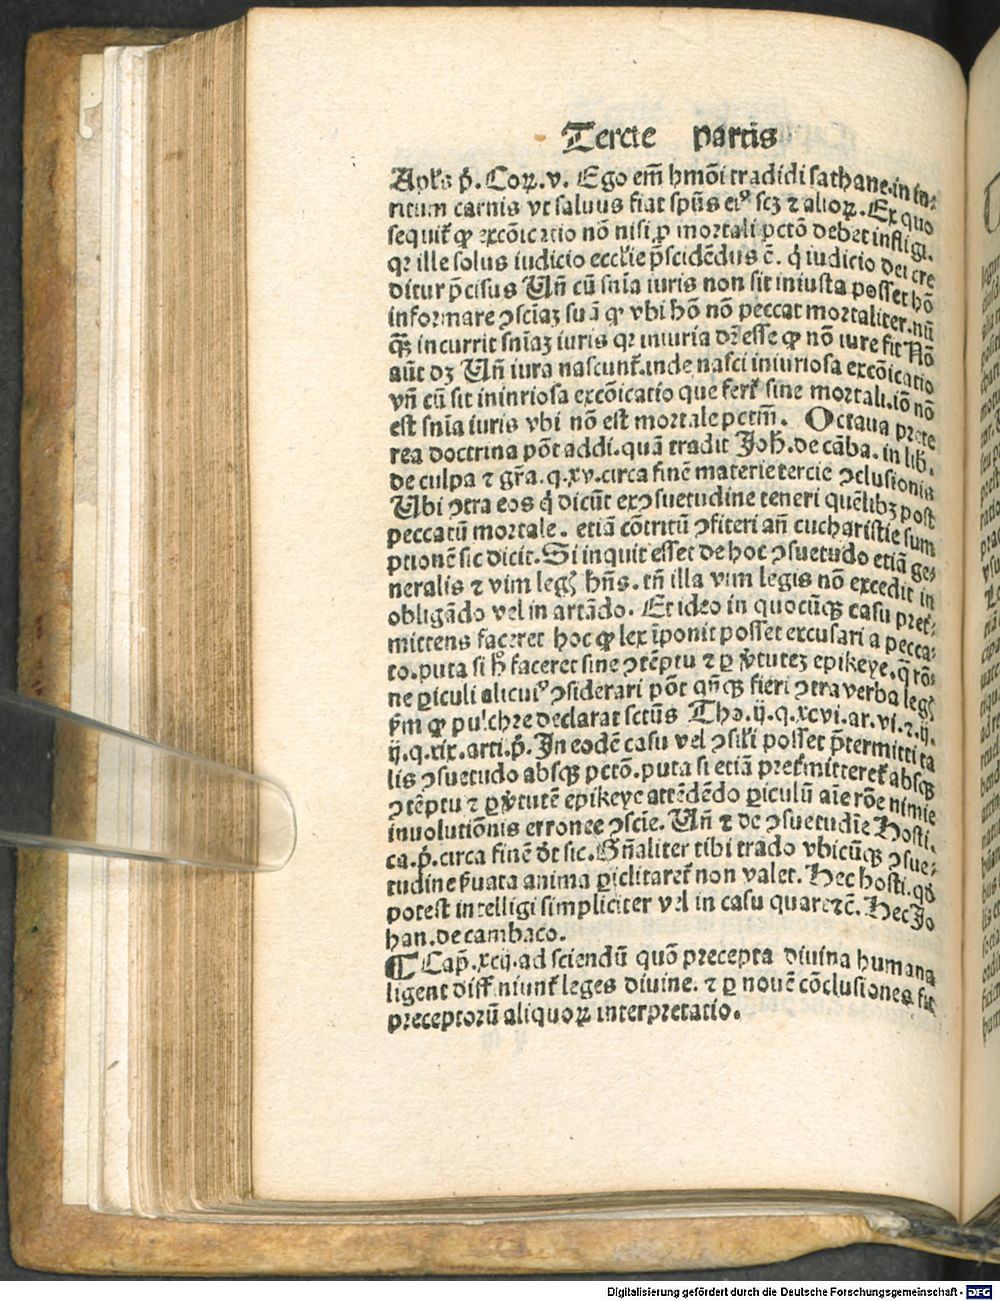 Tercte partis
Apl's p̄. Coꝝ. v. Ego em̄ hmōi tradidi sathane.in in⸗
ritum carnis vt saluus fiat spūs eiꝰ scꝫ ⁊ alioꝝ. Ex quo
sequit᷑ ꝙ excōicatio nō nisi ꝓ mortali pctō debet infligi.
qꝛ ille solus iudicio eccl'ie p̄scidēdus ē. q̇ iudicio dei cre
ditur p̄cisus Vn̄ cū snīa iuris non sit iniusta posset hō
informare ꝯsciaꝫ suā ꝙ vbi hō nō peccat mortaliter.nū
q̄ꝫ incurrit snīaꝫ iuris qꝛ iniuria dꝛ esse ꝙ nō iure fit Nō
aūt dꝫ Vn̄ iura nascunt᷑.inde nasci iniuriosa excōicatio
vn̄ cū sit ininriosa excōicatio que fert᷑ sine mortali.iō nō
est snīa iuris vbi nō est mortale pctm̄. Octaua prete
rea doctrina pōt addi.quā tradit Joh̄.de cāba. in lib.
de culpa ⁊ gr̄a.q.xv.circa finē materie tercie ꝯclusionis
Vbi ꝯtra eos q̇ dicūt exꝯsuetudine teneri quēlibꝫ post
peccatū mortale. etiā cōtritū ꝯfiteri an̄ eucharistie sum
ptionē sic dicit.Si inquit esset de hoc ꝯsuetudo etiā ge⸗
neralis ⁊ vim legꝭ hn̄s. tn̄ illa vim legis nō excedit in
obligādo vel in artādo. Et ideo in quocūqꝫ casu pret᷑⸗
mittens faceret hoc ꝙ lex īponit posset excusari a pecca⸗
to.puta si h̊ faceret sine ꝯtēptu ⁊ ꝑ v̄tuteꝫ epikeye.q̄ rō⸗
ne ꝑiculi alicuiꝰ ꝯsiderari pōt qn̄qꝫ fieri ꝯtra verba legꝭ
ẜm ꝙ pulchre declarat sctūs Tho.ij.q.xcvi.ar.vi.⁊.ij.
ij.q.xix.arti.p̄.In eodē casu vel ꝯsil'i posset p̄termitti ta
lis ꝯsuetudo absqꝫ pctō.puta si etiā pret᷑mitteret᷑ absqꝫ
ꝯtēptu ⁊ ꝑ v̄tutē epikeye attēdēdo ꝑiculū aīe rōe nimie
inuolutiōnis erronee ꝯscīe. Vn̄ ⁊ de ꝯsuetudīe Hosti.
ca.p̄.circa finē dt̄ sic.Gn̄aliter tibi trado vbicūqꝫ ꝯsue⸗
tudine ẜuata anima ꝑiclitaret᷑ non valet. Hec hosti.qd̄
potest intelligi simpliciter vel in casu quare ⁊c̄. Hec Jo
han.de cambaco.
¶ Cap̄.xcij.ad sciendū quō precepta diuina humana
ligent diff.niunt᷑ leges diuine. ⁊ ꝑ nouē cōclusiones fit
preceptorū aliquoꝝ interpretatio.
Digitalisierung gefördert durch die Deutsche Forschungsgemeinschaft - DFG